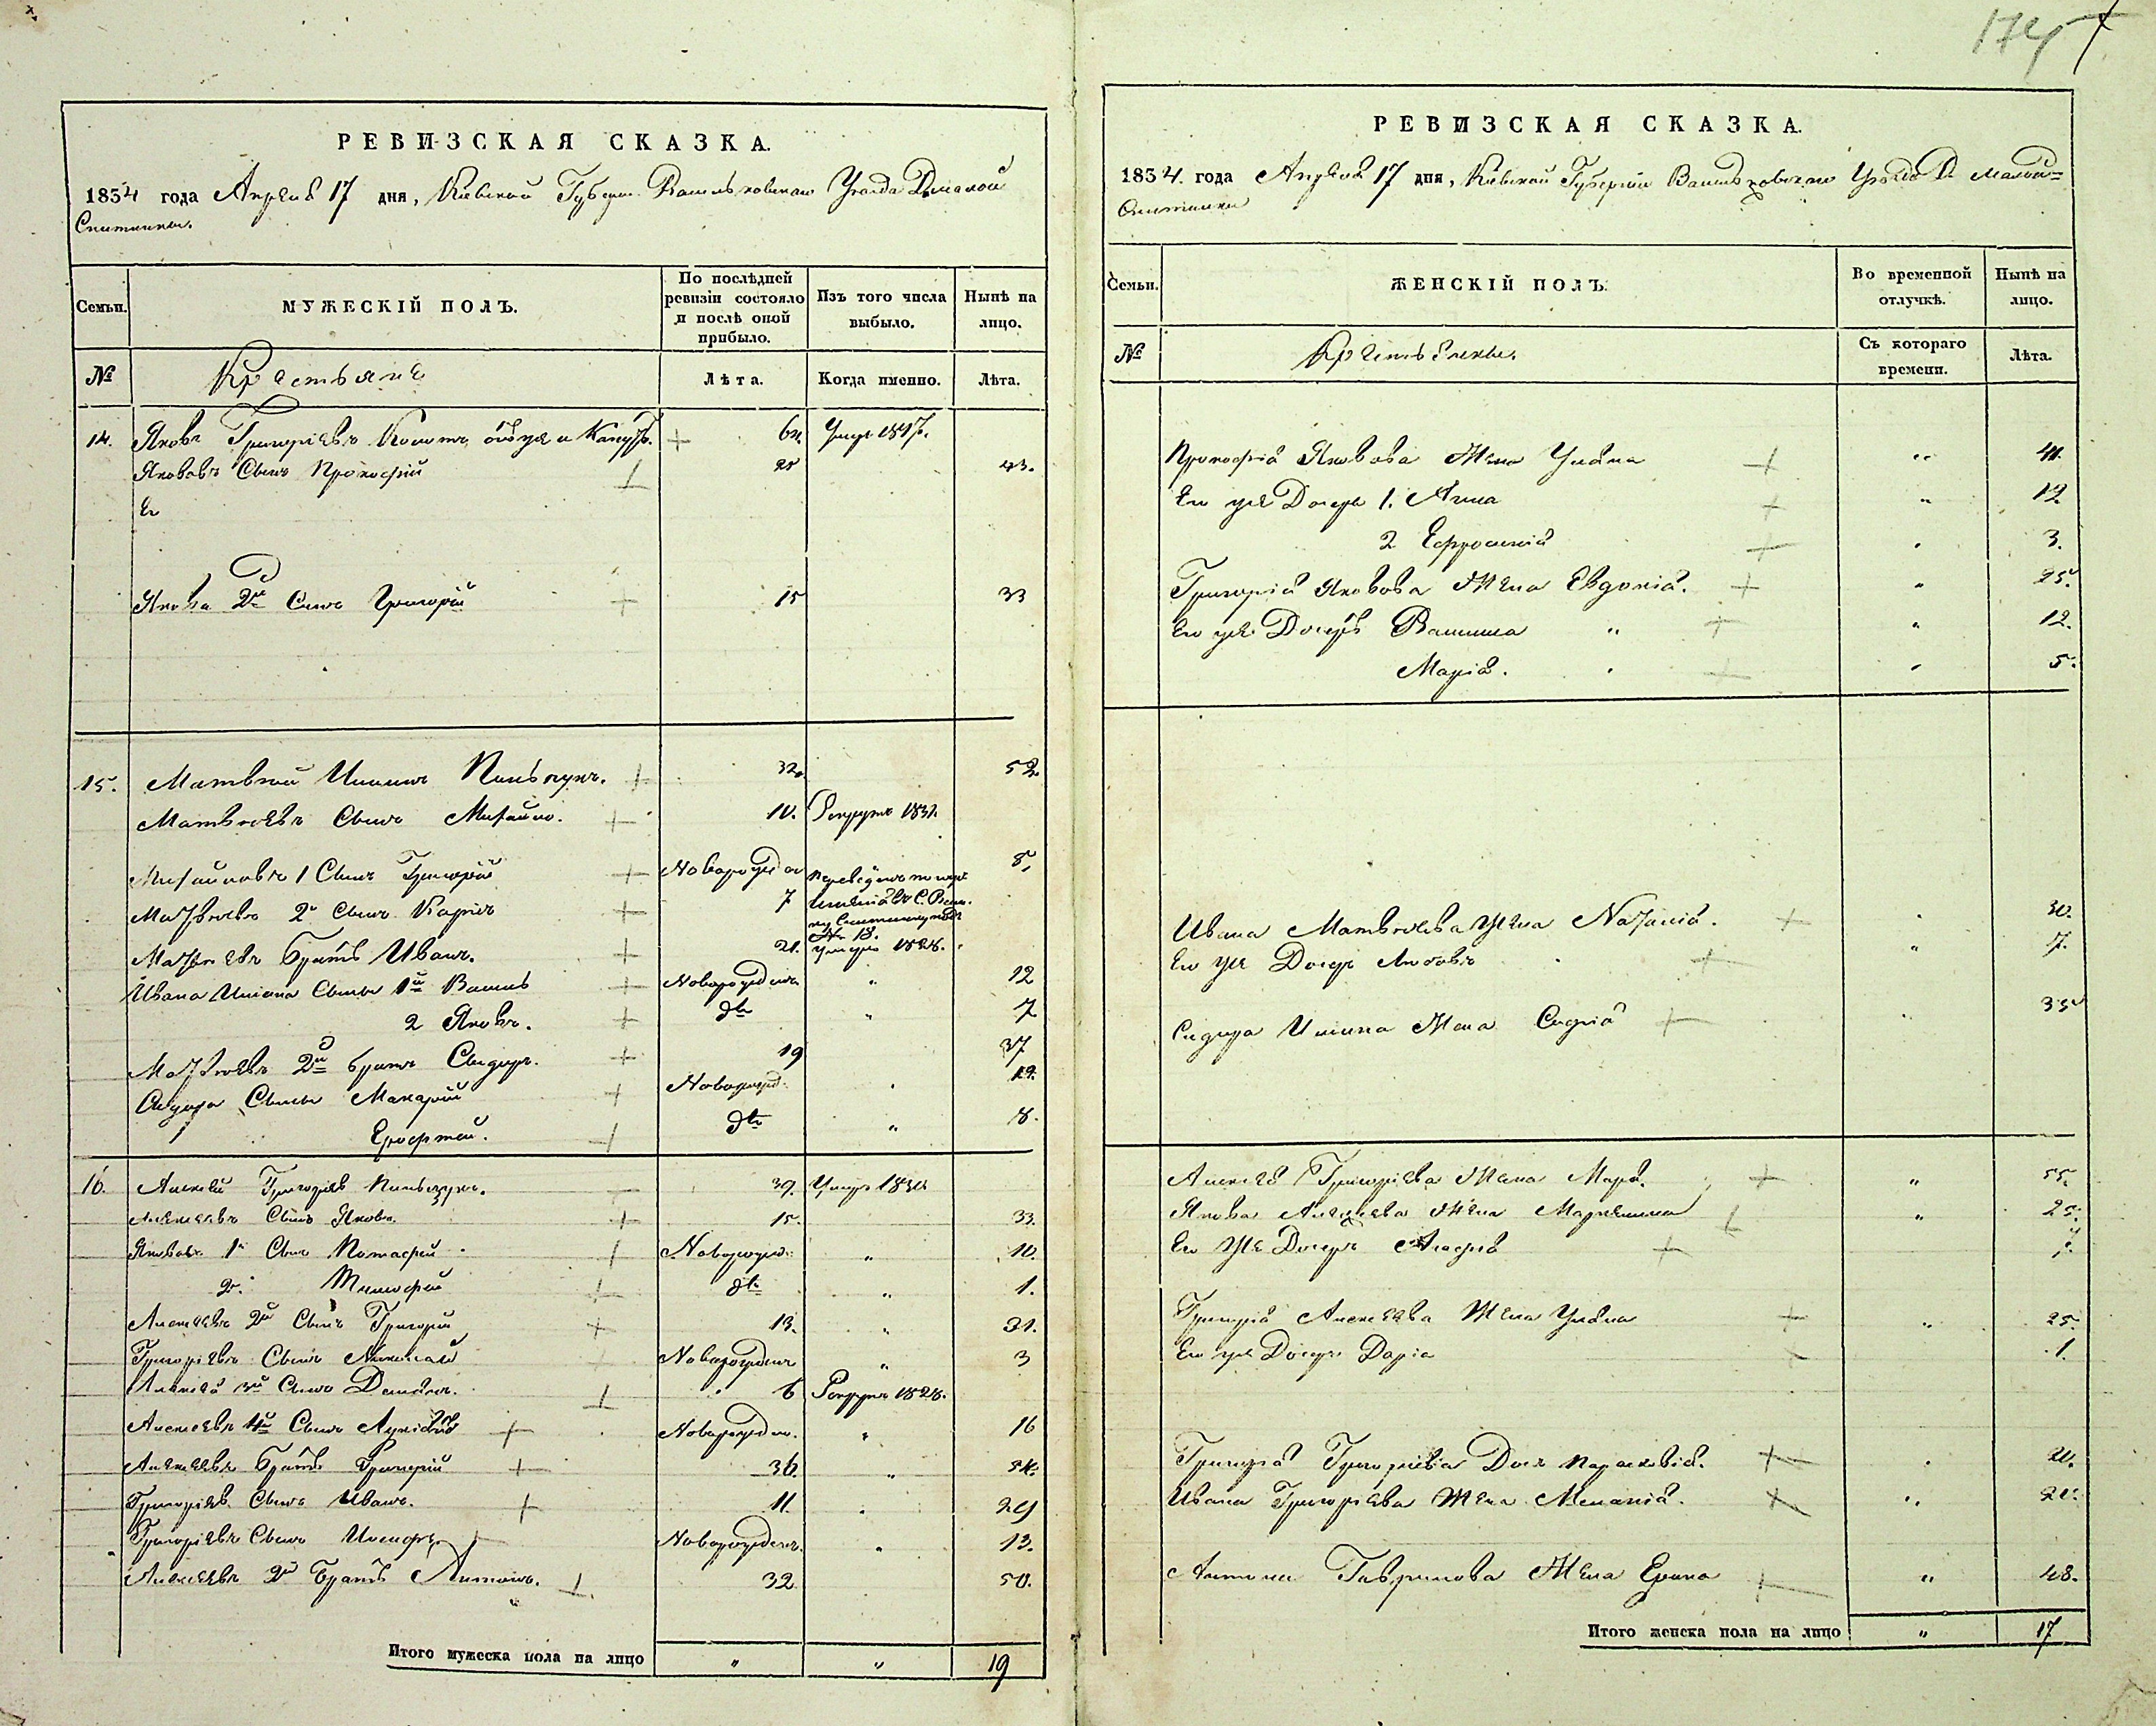 174
РЕВИЗСКАЯ СКАЗКА.
1854 года Апреля 17 дня, Кіевской Губерніи Васильковскаго Уезда Д. Малой
Снитинки.
Семьи.
МУЖЕСКІЙ ПОЛЪ.
По послѣдней ревизіи состояло и послѣ оной прибыло.
Изъ того числа выбыло.
Нынѣ на лицо.
№
Крестьяне
Лѣта.
Когда именно.
Лѣта.
14. Яковъ Григоріевъ 64. Умеръ 1847.
Яковавъ Сынъ Прокофій 25 43.
Ег
Якова 2й Сынъ Григорій 15 33
15. Матвѣй 32. 52
Матвѣевъ Сынъ Михайло. Рекрутъ
Михайловъ 1 Сынъ Григорій Новорожден 8,
Матвѣевъ 2й Сынъ Карпъ 7
№ 18.
Матвѣевъ Братъ Иванъ. 21. умеръ
Ивана Сыны 1й Василь Новорожденъ " 12
2 Яковъ. дто " 7
Матвѣевъ 2й братъ Сидоръ. 19 37
Сидора Сыны Макарій Новорожд. 12.
Ерофтей. дто " 8.
16. Алексѣй Григоріевъ 39. Умеръ
Алексѣевъ Сынъ Яковъ 15. 33.
Яковавъ 1й Сынъ Новорожд. " 10.
2й Тимофій дто " 1.
Алексѣевъ 2й Сынъ Григорій 13. " 31.
Григоріевъ Сынъ Николай Новорожденъ " 3
Алексѣя 3й Сынъ 6 Рекрутъ 1848.
Алексѣевъ 4й Сынъ Новорожден. " 16
Алексѣевъ Братъ Григорій 36. " 54.
Григоріевъ Сынъ Иванъ. 11. 29
Григоріевъ Сынъ Новорожденъ. " 13.
Алексѣевъ 2й Братъ Антонъ. 32. 50.
Итого мужеска пола на лицо " " 19
РЕВИЗСКАЯ СКАЗКА.
1854. года Апреля 17 дня, Кіевской Губерніи Васильковскаго Уезда Д. Малой
Снитинки
Семьи.
ЖЕНСКІЙ ПОЛЪ.
Во временной отлучкѣ.
Нынѣ на лицо.
№
Крестьянки.
Съ котораго времени.
Лѣта.
Прокофія Яковова Жена Уляна " 41.
Его же Дочери 1. Анна " 12
2 Ефросинія 3.
Григорія Яковова Жена Евдокія. " 25.
Его же Дочерь " 12.
Марія. 5.
Ивана Матвѣева Жена Наталія. 30.
Его же Дочерь Любовь " 7.
Сидора Жена Софія 35
Алексѣя Григоріева Жена Марія. " 55.
Якова Алексѣева Жена " 25.
Его же Дочерь
Григорія Алексѣева Жена Уляна " 25.
Его же Дочерь Дарія 1.
Григорія Григоріева Дочь Парасковія. 20.
Ивана Григоріева Жена Меланія. "
Антона Гаврилова Жена Ерина " 48.
Итого женска пола на лицо " 17